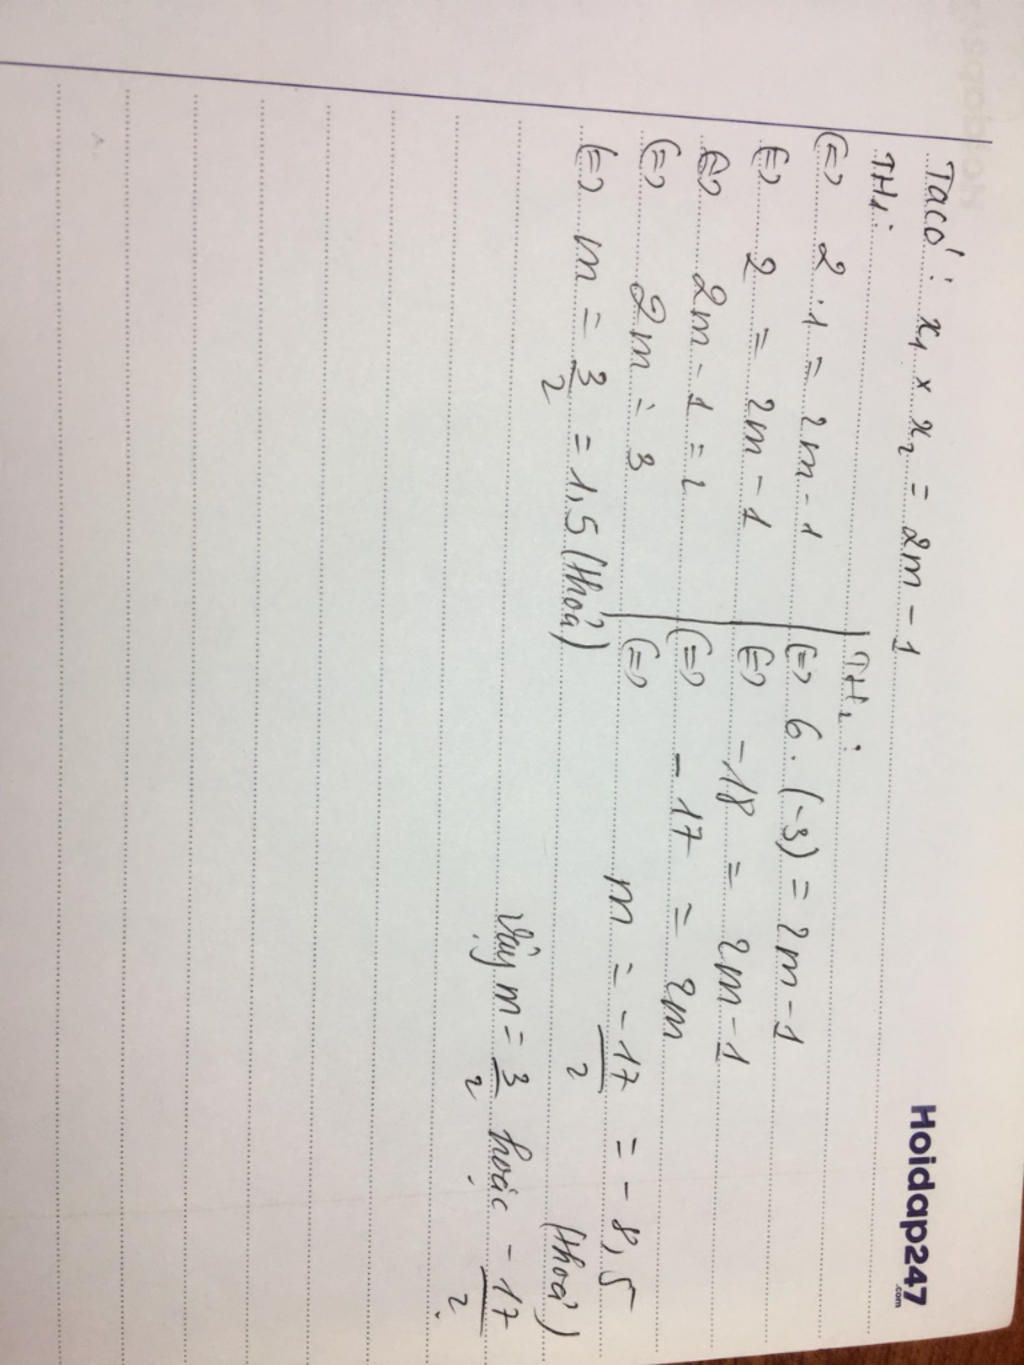 Hoidap247
.com
Ta có: x₁ × x₂ = 2m - 1
TH₁:
(=) 2 . 1 = 2m - 1
(=) 2 = 2m - 1
(=) 2m - 1 = 2
(=) 2m = 3
(=) m = 3/2 = 1,5 (thoả)
TH₂:
(=) 6 . (-3) = 2m - 1
(=) -18 = 2m - 1
(=) -17 = 2m
(=) m = -17/2 = -8,5
(thoả)
Vậy m = 3/2 hoặc -17/2